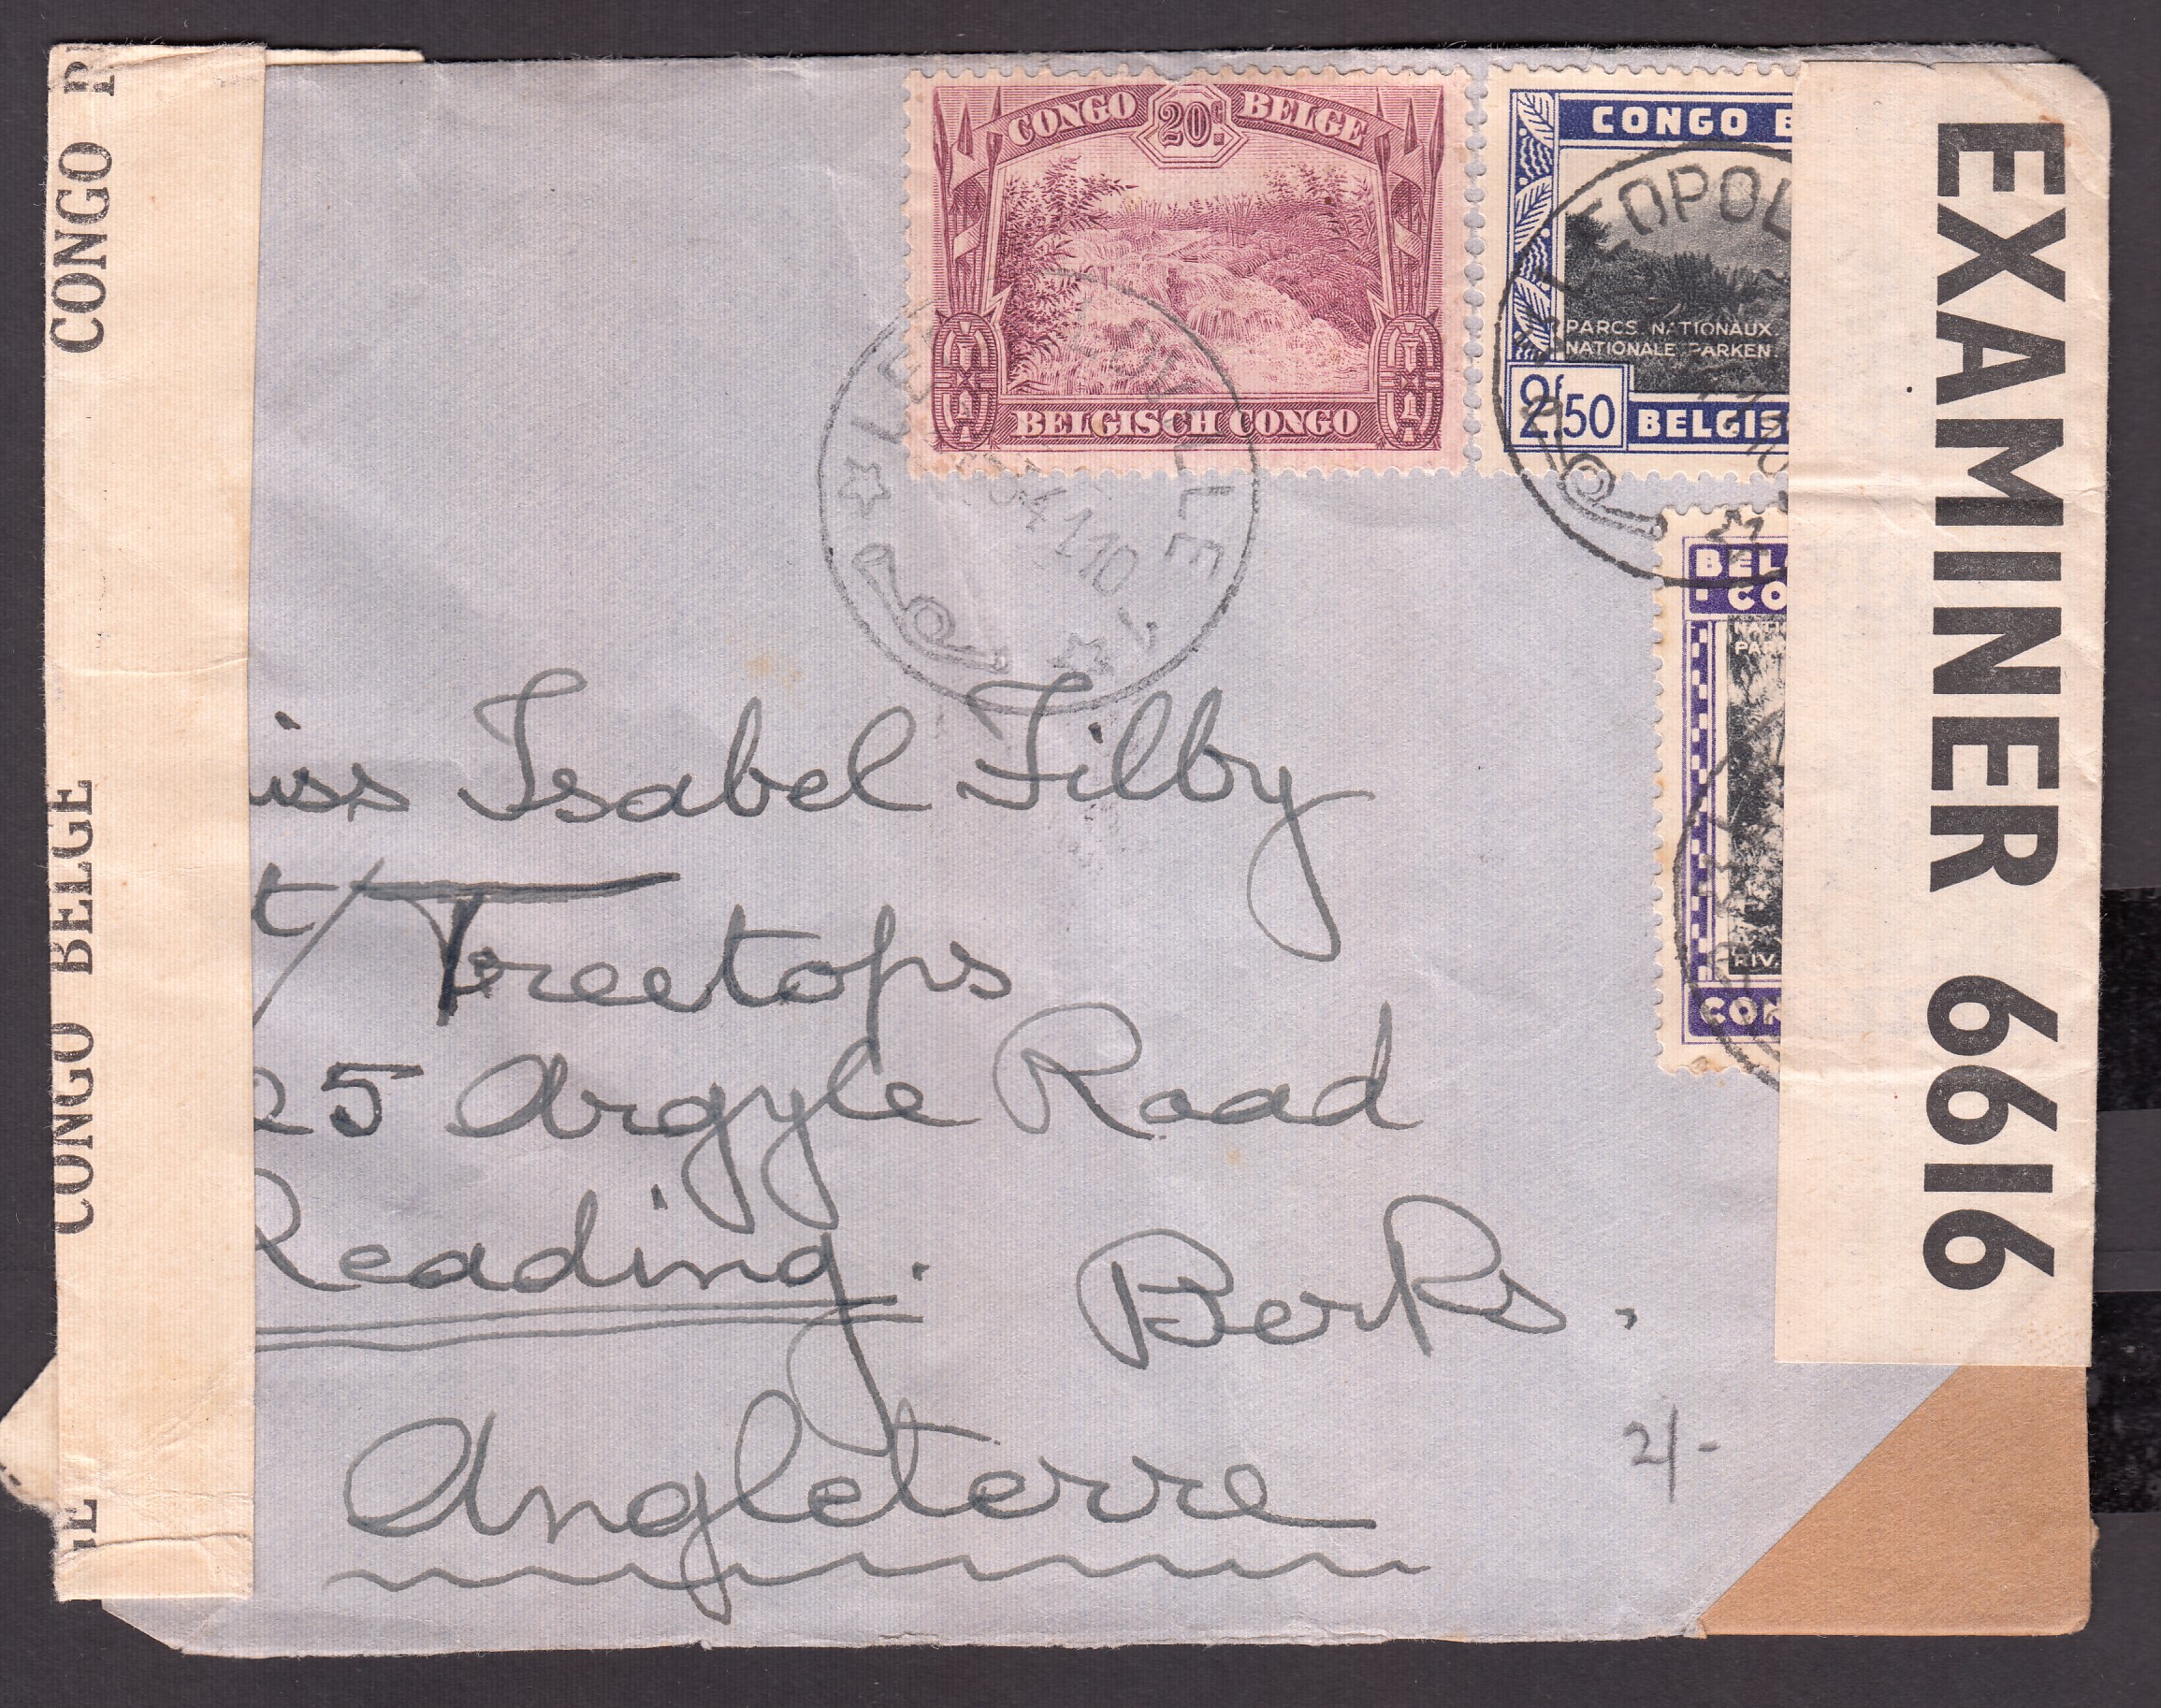 CONGO
CONGO BELGE
CONGO 20c. BELGE
BELGISCH CONGO
CONGO B
PARCS NATIONAUX.
NATIONALE PARKEN.
2f.50 BELGIS
LEOPOL
LE
1
BEL
CO
NATI
PA
RIV.
CON
EXAMINER 6616
iss Isabel Filby
t/ Treetops
25 Argyle Road
Reading.
Berks.
Angleterre
2/-